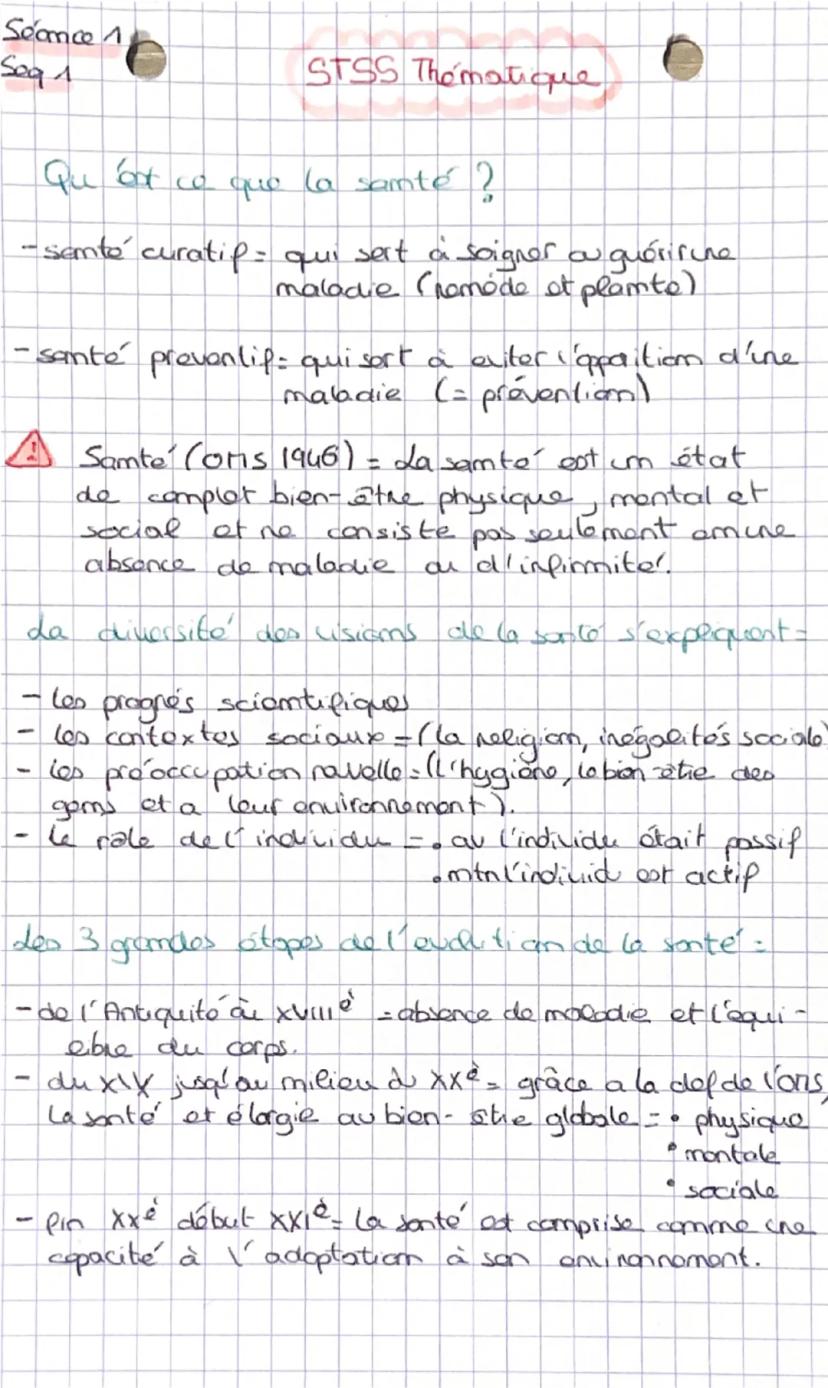 Séance 1
Seq 1
STSS Thématique
Qu'est ce que la santé ?
- santé curatif = qui sert à soigner ou guérir une
maladie (remède et plante)
- santé preventif = qui sert à eviter l'appaition d'une
maladie (= prévention)
Santé (OMS 1946) = La santé est un état
de complet bien-être physique, mental et
social et ne consiste pas seulement en une
absence de maladie ou d'infirmité.
La diversité des visions de la santé s'expliquent =
- les progrès scientifiques
- les contextes sociaux = (la religion, inégalités sociale)
- les préoccupation nouvelle = (l'hygiène, le bien-être des
gens et a leur environnement).
- le rôle de l'individu = • av l'individu était passif
• mtn l'individ est actif
Les 3 grandes étapes de l'évolution de la santé =
- de l'Antiquité au XVIIIè = absence de maladie et l'équi-
libre du corps.
- du XIX jusqu'au milieu du XXè = grâce a la def de l'OMS,
la santé et élargie au bien-être globale = • physique
• mentale
• sociale
- fin XXè début XXIè = la santé est comprise comme une
capacité à l'adaptation à son environnement.